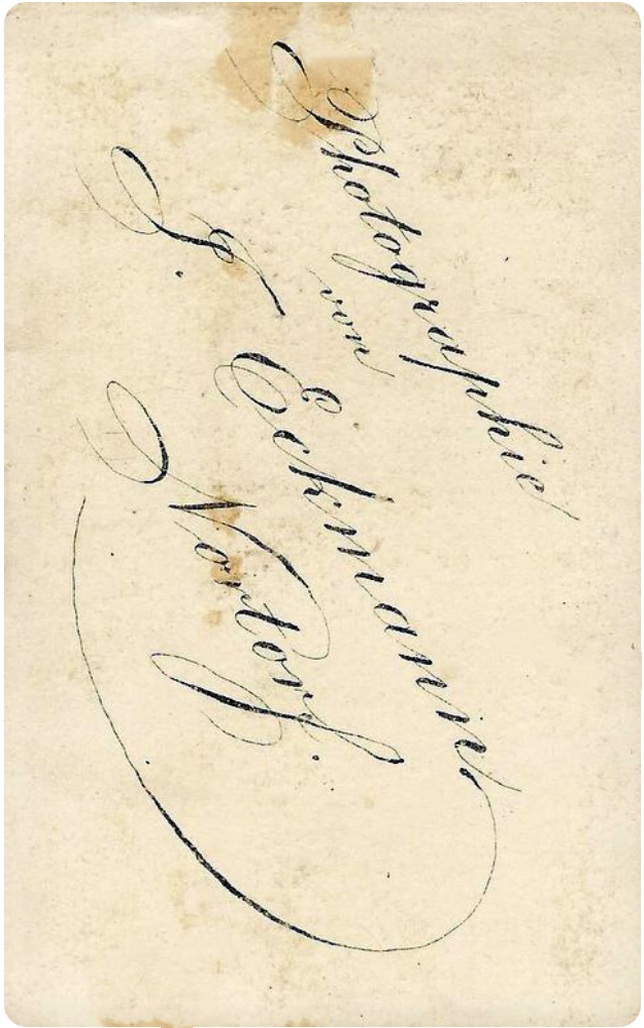 Photographie
von
Eckmann
Nortorf.